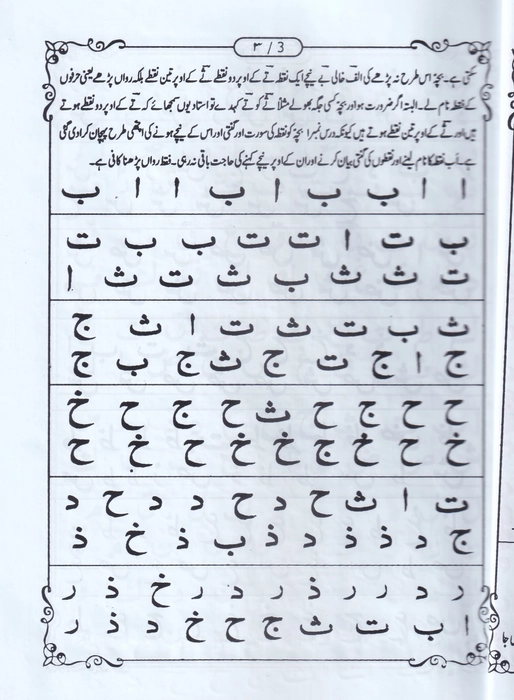 ۳ / 3
سکتی ہے۔ بچہ اس طرح نہ پڑھے کی الف خالی بے نیچے ایک نقطہ تے کے اوپر دو نقطے ثے کے اوپر تین نقطے بلکہ رواں پڑھے یعنی حرفوں
کے فقط نام لے۔ البتہ اگر ضرورت ہو اور بچہ کسی جگہ بھولے مثلاً ثے کو تے کہدے تو استاد یوں سمجھائے کہ تے کے اوپر دو نقطے ہوتے
ہیں اور ثے کے اوپر تین نقطے ہوتے ہیں کیونکہ درس نمبر ۱ بچہ کو نقطہ کی صورت اور گنتی اور اس کے نیچے ہونے کی اچھی طرح پہچان کرادی گئی
ہے۔ اب نقطہ کا نام لینے اور نقطوں کی گنتی بیان کرنے اور ان کے اوپر نیچے کہنے کی حاجت باقی نہ رہی۔ فقط رواں پڑھنا کافی ہے۔
ا ا ب ب ا ب ا ا ب
ب ت ا ت ت ب ب ت
ت ث ث ب ث ت ث ا
ث ب ت ث ت ا ث ج
ج ا ج ت ج ث ج ب ج
ح ح ج ح ث ح ج ح خ
خ ح خ ج خ خ ح خ ح
ت ا ث ح د ح د د ح د
ج د ذ ذ د ذ ب ذ خ ذ
ر د ر ر ذ ر د ر خ ذ ر
ا ب ت ث ج ح خ د ذ ر